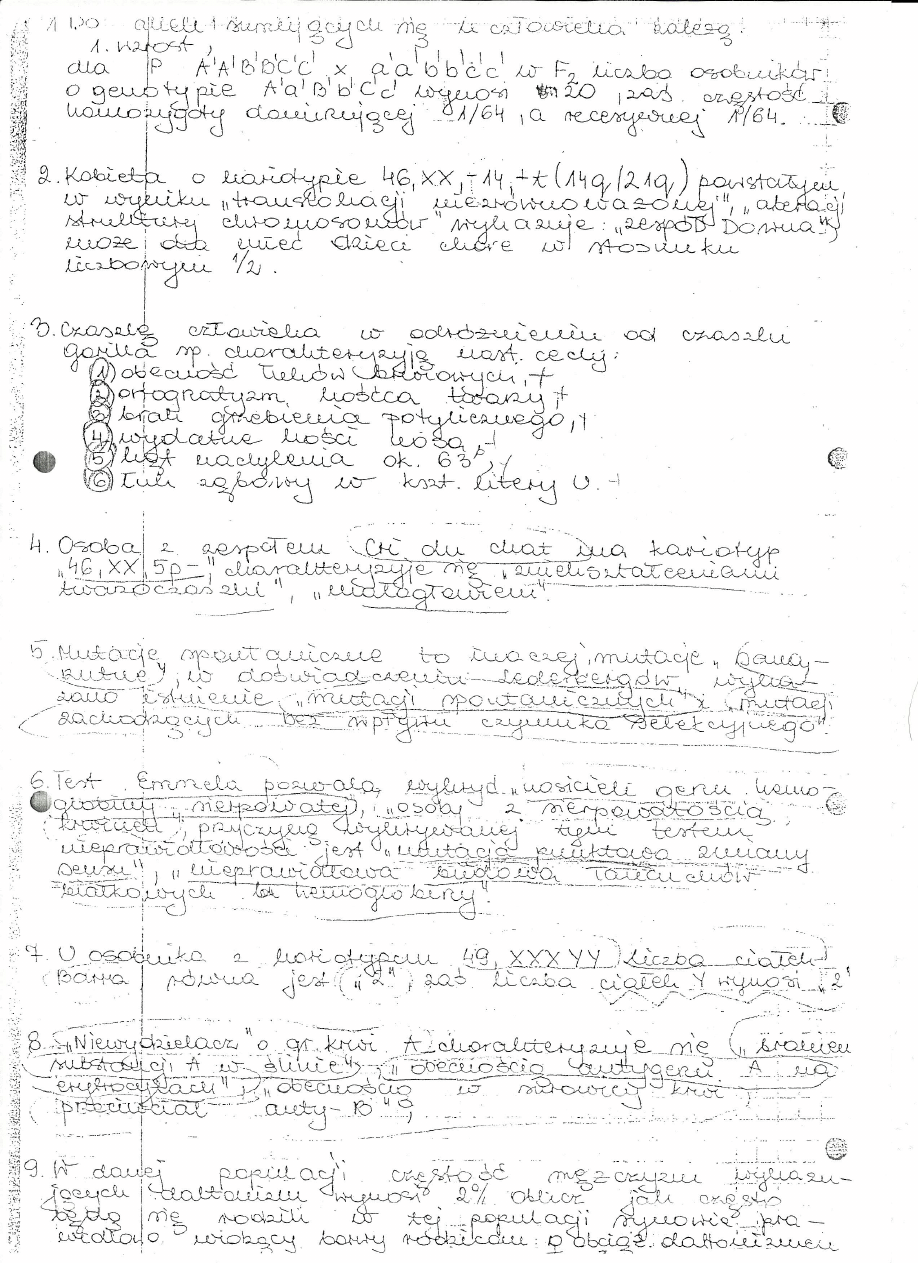 1 Do alleli sumujących się u człowieka należą:
1. wzrost,
dla P A'A'B'B'C'C' x a'a'b'b'c'c' w F2 liczba osobników
o genotypie A'a'B'b'C'c' wynosi 20, zaś częstość
homozygoty dominującej 1/64, a recesywnej 1/64.
2. Kobieta o kariotypie 46,XX,-14,+t(14q/21q) powstałym
w wyniku "translokacji niezrównoważonej", "aberacji
struktury chromosomów" wykazuje: "zespół Downa"
może mieć dzieci chore w stosunku
liczbowym 1/2.
3. Czaszkę człowieka w odróżnieniu od czaszki
goryla sp. charakteryzują nast. cechy:
1) obecność łuków brwiowych, +
2) ortognatyzm, kośćca twarzy +
3) brak grzebienia potylicznego, +
4) wydatne kości nosa, +
5) kąt nachylenia ok. 63°,
6) łuk zębowy w kszt. litery U. +
4. Osoba z zespołem Cri du chat ma kariotyp
"46, XX, 5p-", charakteryzuje się "zniekształceniami
twarzoczaszki", "małogłowiem".
5. Mutacje spontaniczne to inaczej, mutacje,
w doświadczeniu Lederbergów wyka-
zano istnienie "mutacji spontanicznych" i "mutacji
zachodzących bez wpływu czynnika selekcyjnego".
6. Test Emmela pozwala wykryć "nosicieli genu hemo-
globiny sierpowatej", "osoby z sierpowatością
krwinek", przyczyną wykrywanej tym testem
nieprawidłowości jest "mutacja punktowa zmiany
sensu", "nieprawidłowa budowa łańcuchów
białkowych hemoglobiny".
7. U osobnika z kariotypem 49, XXXYY liczba ciałek
Barra równa jest "2", zaś liczba ciałek Y wynosi "2"
8. "Niewydzielacz" o gr. krwi A charakteryzuje się "brakiem
substancji A w ślinie", "obecnością antygenu A na
erytrocytach", "obecnością w surowicy krwi
przeciwciał anty-B",
9. W danej populacji częstość mężczyzn wykazu-
jących daltonizm wynosi 2% oblicz jak często
będą się rodzili w tej populacji synowie pra-
widłowo widzący barwy rodzicom: o obciąż. daltonizmem